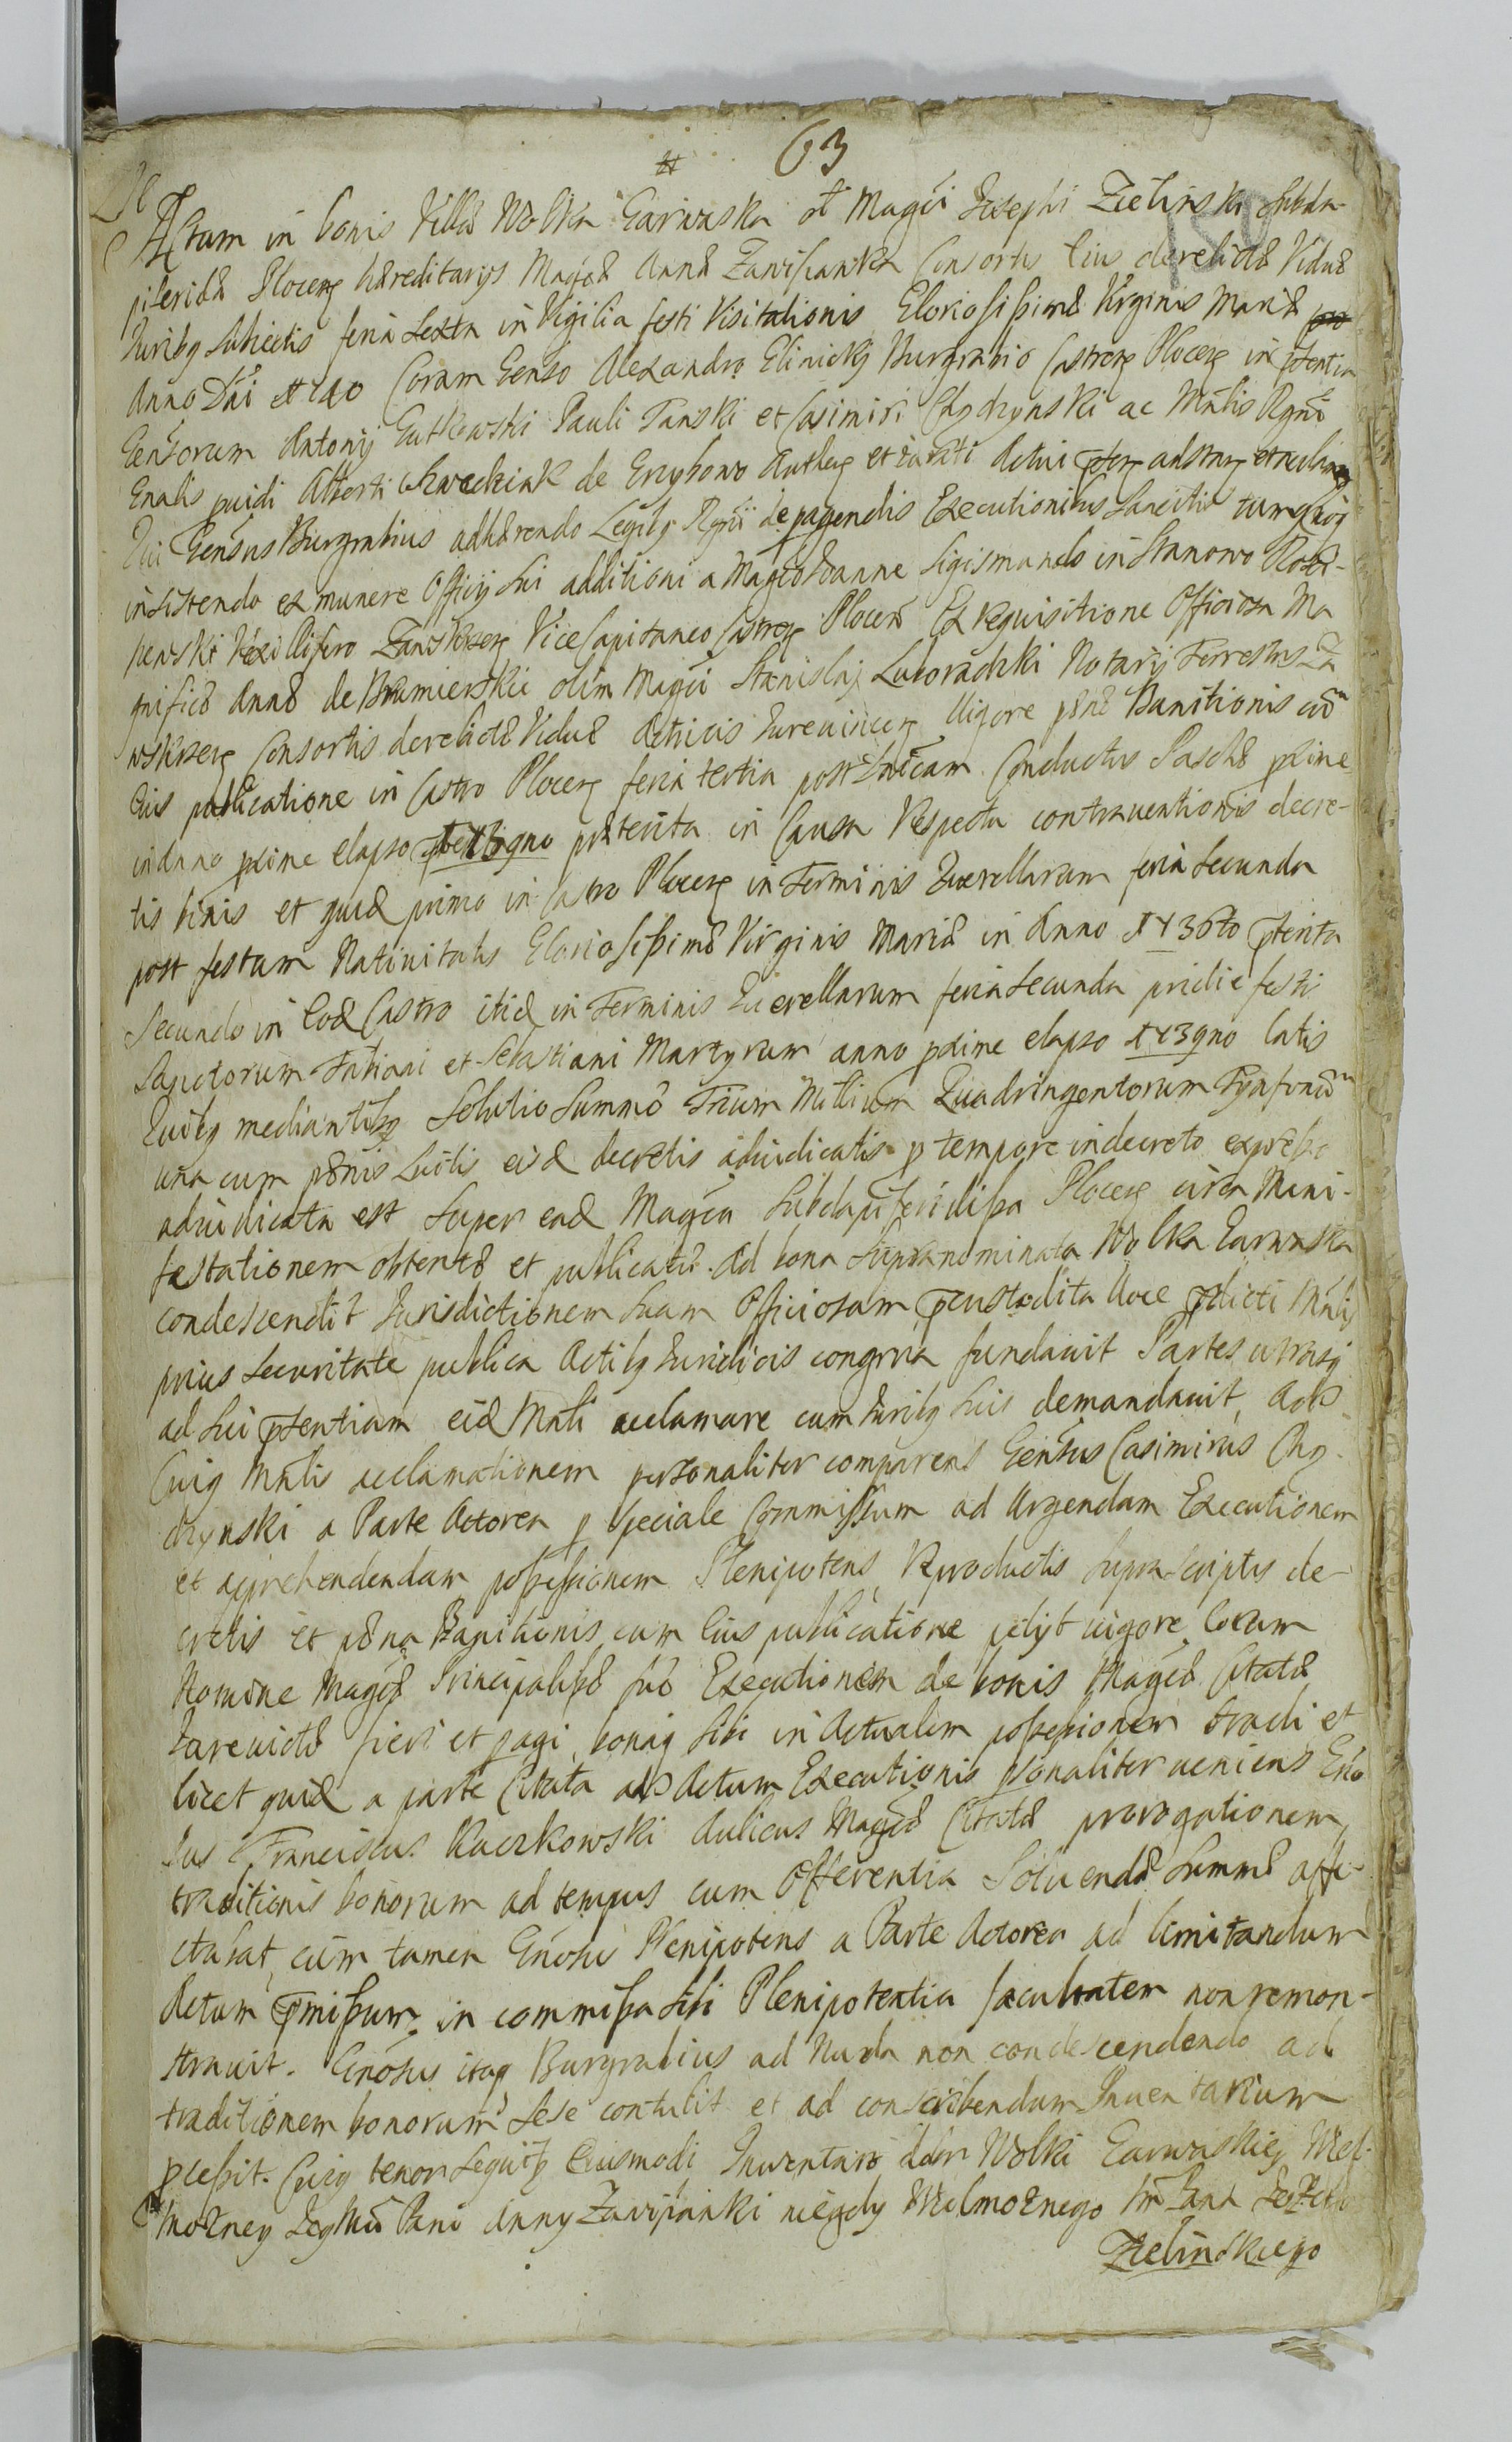 63
Actum in bonis Villæ Wolka Garwaska ol Magci Josephi Zielinski Subda-
piferidæ Plocen hæreditarys Magcæ Annæ Zawiszanka Consortis Eius derelictæ Viduæ
Juribq Subiectis feria Sexta in Vigilia festi Visitationis Gloriosissimæ Virginis Mariæ
Anno Dni 1740 Coram Genso Alexandro Glinicki Burgrabio Castren Plocen in ptentia
Gensorum Antony Gutkowski Pauli Tanski et Casimiri Chydzynski ac Mnlis Rgni
Gnalis puidi Alberti de Grzybowo Authen et iurati Actui
Qui Gensus Burgrabius adhærendo Legibq Rgni de pagendis Executionibus Sancitis tumquoq
insistendo ex munere Officy Sui additioni a Magco Joanne Sigismundo in Stanowo
Vexillifero Zawskrzen Vice Capitaneo Castren Plocen Ex requisitione Officiosa Ma
gnificæ Annæ de olim Magci Stanislai Luboradzki Notary Terrestris Za
wskrzen Consortis derelictæ Viduæ Actricis Jurevincen Vigore pænæ Banitionis cum
Eius publicatione in Castro Plocen feria tertia post Dnicam Conductus Paschæ pxime
in Anno pxime elapso 1739no ptenta in Causa Respectu contraventionis decre-
tis binis et quid primo in Castro Plocen in Terminis Querellarum feria Secunda
post festum Nativitatis Gloriosissimæ Virginis Mariæ in Anno 1736to ptenta
Secundo in Eod Castro itid in Terminis Querellarum feria Secunda pridie festi
Sanctorum Fabiani et Sebastiani Martyrum anno pxime elapso 1739no latis
Quibq mediantibq Solutio Summæ Trium Millium Quadringentorum Tynfonum
una cum pænis Luitis eisd decretis adiudicatis p tempore in decreto expresso
adiudicata est Super ead Magca Subdapiferidissa Plocen circa Mani-
festationem obtentæ et publicatæ. Ad bona Supranominata Wolka Garwaska
condescendit Jurisdictionem Suam Officiosam pcustodita voce pdicti Mnlis
prius Securitate publica Actibq Juridicis congrua fundavit Partes utrasq
ad Sui ptentiam eid Mnli acclamare cum Juribq Suis demandavit, ad
Cuiq Mnlis acclamationem personaliter comparens Gensus Casimirus Chy-
dzynski a Parte Actorea p Speciale Commissum ad Urgendam Executionem
et apprehendendam possessionem Plenipotens Reproductis Suprascriptis de-
cretis et pæna Banitionis cum Eius publicatione petyt vigore eorum
Nomine Magcæ Principalisæ suæ Executionem de bonis Magcæ Citatæ
Jurevictæ fieri et pagi, bonaq Sibi in Actualem possessionem tradi et
licet quid a parte Citata ad Actum Executionis psonaliter veniens Gno
sus Franciscus Kaczkowski Aulicus Magcæ Citatæ prorogationem
traditionis bonorum ad tempus cum Offerentia Solvendæ Summæ affe-
ctabat, cum tamen Gnosus Plenipotens a Parte Actorea ad limitandum
Actum pmissum in commissa Sibi Plenipotentia facultatem non remon-
stravit. Gnosus itaq Burgrabius ad Nuda non condescendendo ad
traditionem bonorum Sese contulit et ad conscribendum Inventarium
pcessit. Cuiq tenor Sequitq Eiusmodi Inwentarz dobr Wolki Garwaskiey Wiel-
możney Jey Mci Pani Anny Zawiszanki niegdy Wielmożnego Im Pana Jozefa
Zielinskiego